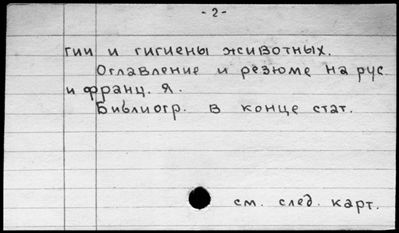 - 2 -
гии и гигиены животных.
Оглавление и резюме на рус.
и франц. я.
Библиогр. в конце стат.
см. след. карт.